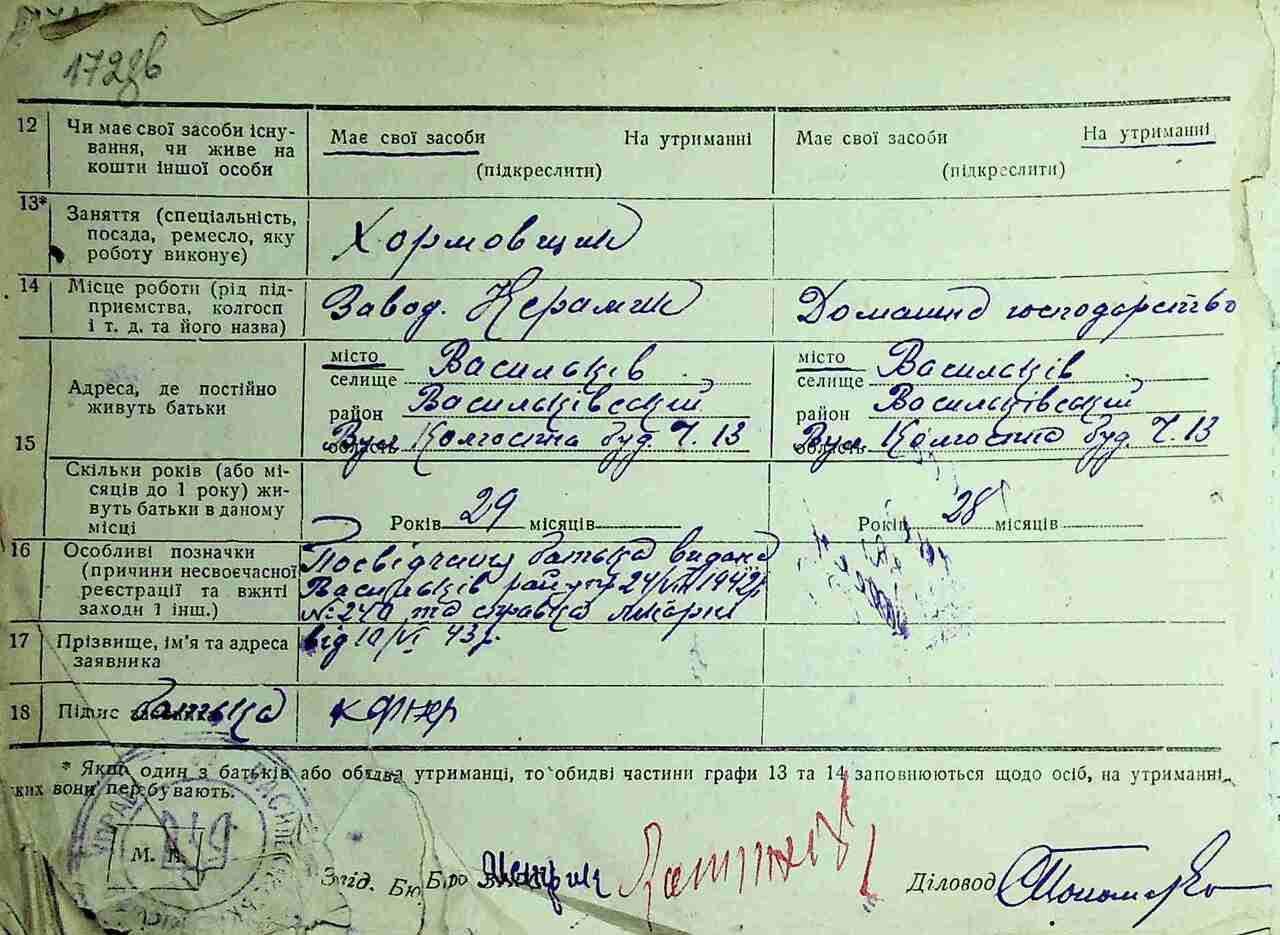 172зв
12 Чи має свої засоби існу-
вання, чи живе на
кошти іншої особи
Має свої засоби На утриманні
(підкреслити)
Має свої засоби На утриманні
(підкреслити)
13* Заняття (спеціальність,
посада, ремесло, яку
роботу виконує)
Хормовщик
14 Місце роботи (рід під-
приємства, колгосп
і т. д. та його назва)
Завод. Керамик
Домашнє господарство
15 Адреса, де постійно
живуть батьки
місто Васильків
селище
район Васильківський
область Вул. Колгоспна буд. Ч. 13
місто Васильків
селище
район Васильківський
область Вул. Колгоспна буд. Ч. 13
Скільки років (або мі-
сяців до 1 року) жи-
вуть батьки в даному
місці
Років 29 місяців
Років 28 місяців
16 Особливі позначки
(причини несвоєчасної
реєстрації та вжиті
заходи і інш.)
Посвідчення батька видане
Васильків рай упр 24/VIII 1942р
№ 240 та справка лікарні
від 10/VI 43 р.
17 Прізвище, ім'я та адреса
заявника
18 Підпис батька
* Якщо один з батьків або обидва утриманці, то обидві частини графи 13 та 14 заповнюються щодо осіб, на утриманні
яких вони перебувають.
М. П.
Бюро
Діловод